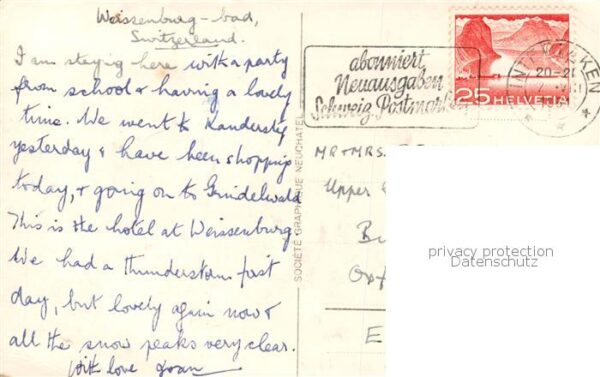 Weissenburg-bad,
Switzerland.
I am staying here with a party
from school & having a lovely
time. We went to Kandersteg
yesterday & have been shopping
today, & going on to Grindelwald
This is the hotel at Weissenburg
We had a thunderstorm first
day, but lovely again now &
all the snow peaks very clear.
With love Joan
SOCIÉTÉ GRAPHIQUE NEUCHATEL
abonniert
Neuausgaben
Schweiz. Postmarken
25 HELVETIA
INTERLAKEN
20-21
MR & MRS.
Upper
Bu
Oxf
E
privacy protection
Datenschutz